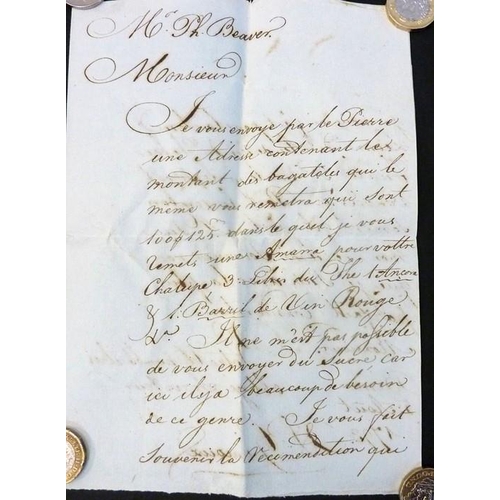 Mr. Ph. Beaver.
Monsieur
Je vous envoye par le Pierre
une Adresse contenant le
montant des bagatoles qui le
même vous remetra qui sont
dans le quel je vous
remets une Amarre pour vottre
Chalupe 3 Libre du The 1 Ancre
& 1. Barril de Vin Rouge
Il ne m'est pas possible
de vous envoyer du Sucre car
ici il sja beaucoup de besoin
de ce genre. Je vous fait
Souvenir la recomendition qui